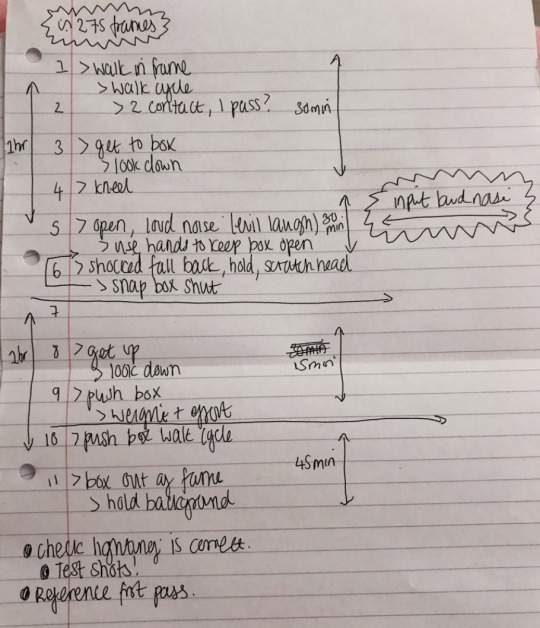 275 frames
1 > walk in frame
> walk cycle
2 > 2 contact, 1 pass?
30min
1hr
3 > get to box
> look down
4 > kneel
5 > open, loud noise (evil laugh) 30 min
> use hands to keep box open
input
6 > shocked fall back, hold, scratch head
> snap box shut
7
1hr
8 > get up
> look down
30min
15min
9 > push box
> weight + effort
10 > push box walk cycle
45min
11 > box out of frame
> hold background
• check lighting is correct.
• Test shots!
• Reference first pass.